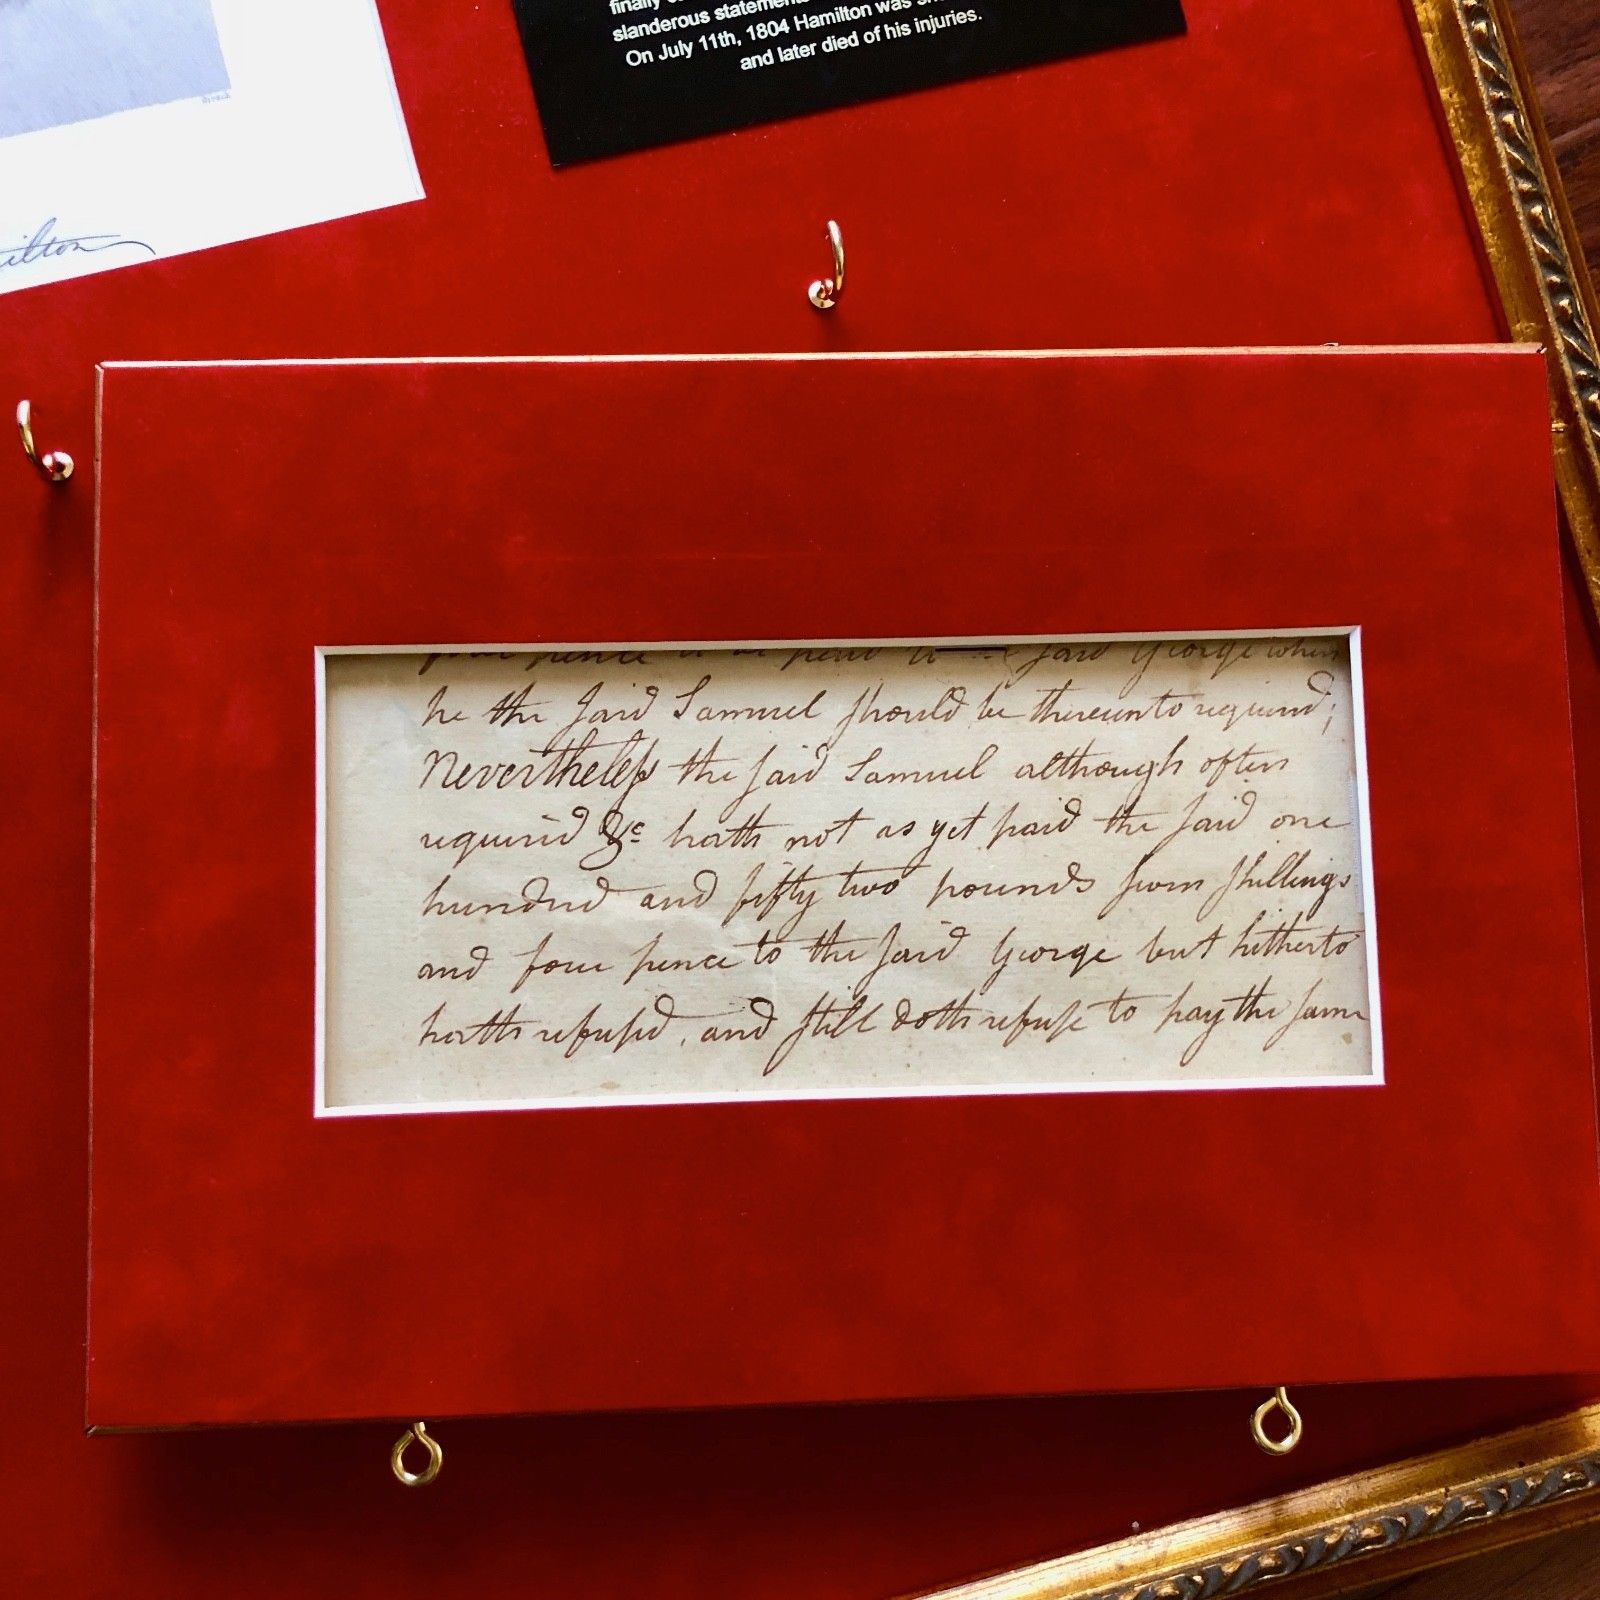 finally
slanderous statements
On July 11th, 1804 Hamilton was
and later died of his injuries.
ilton
four pence to be paid to said George when
he the said Samuel should be thereunto required;
Nevertheless the said Samuel although often
required &c hath not as yet paid the said one
hundred and fifty two pounds seven shillings
and four pence to the said George but hitherto
hath refused, and still doth refuse to pay the same